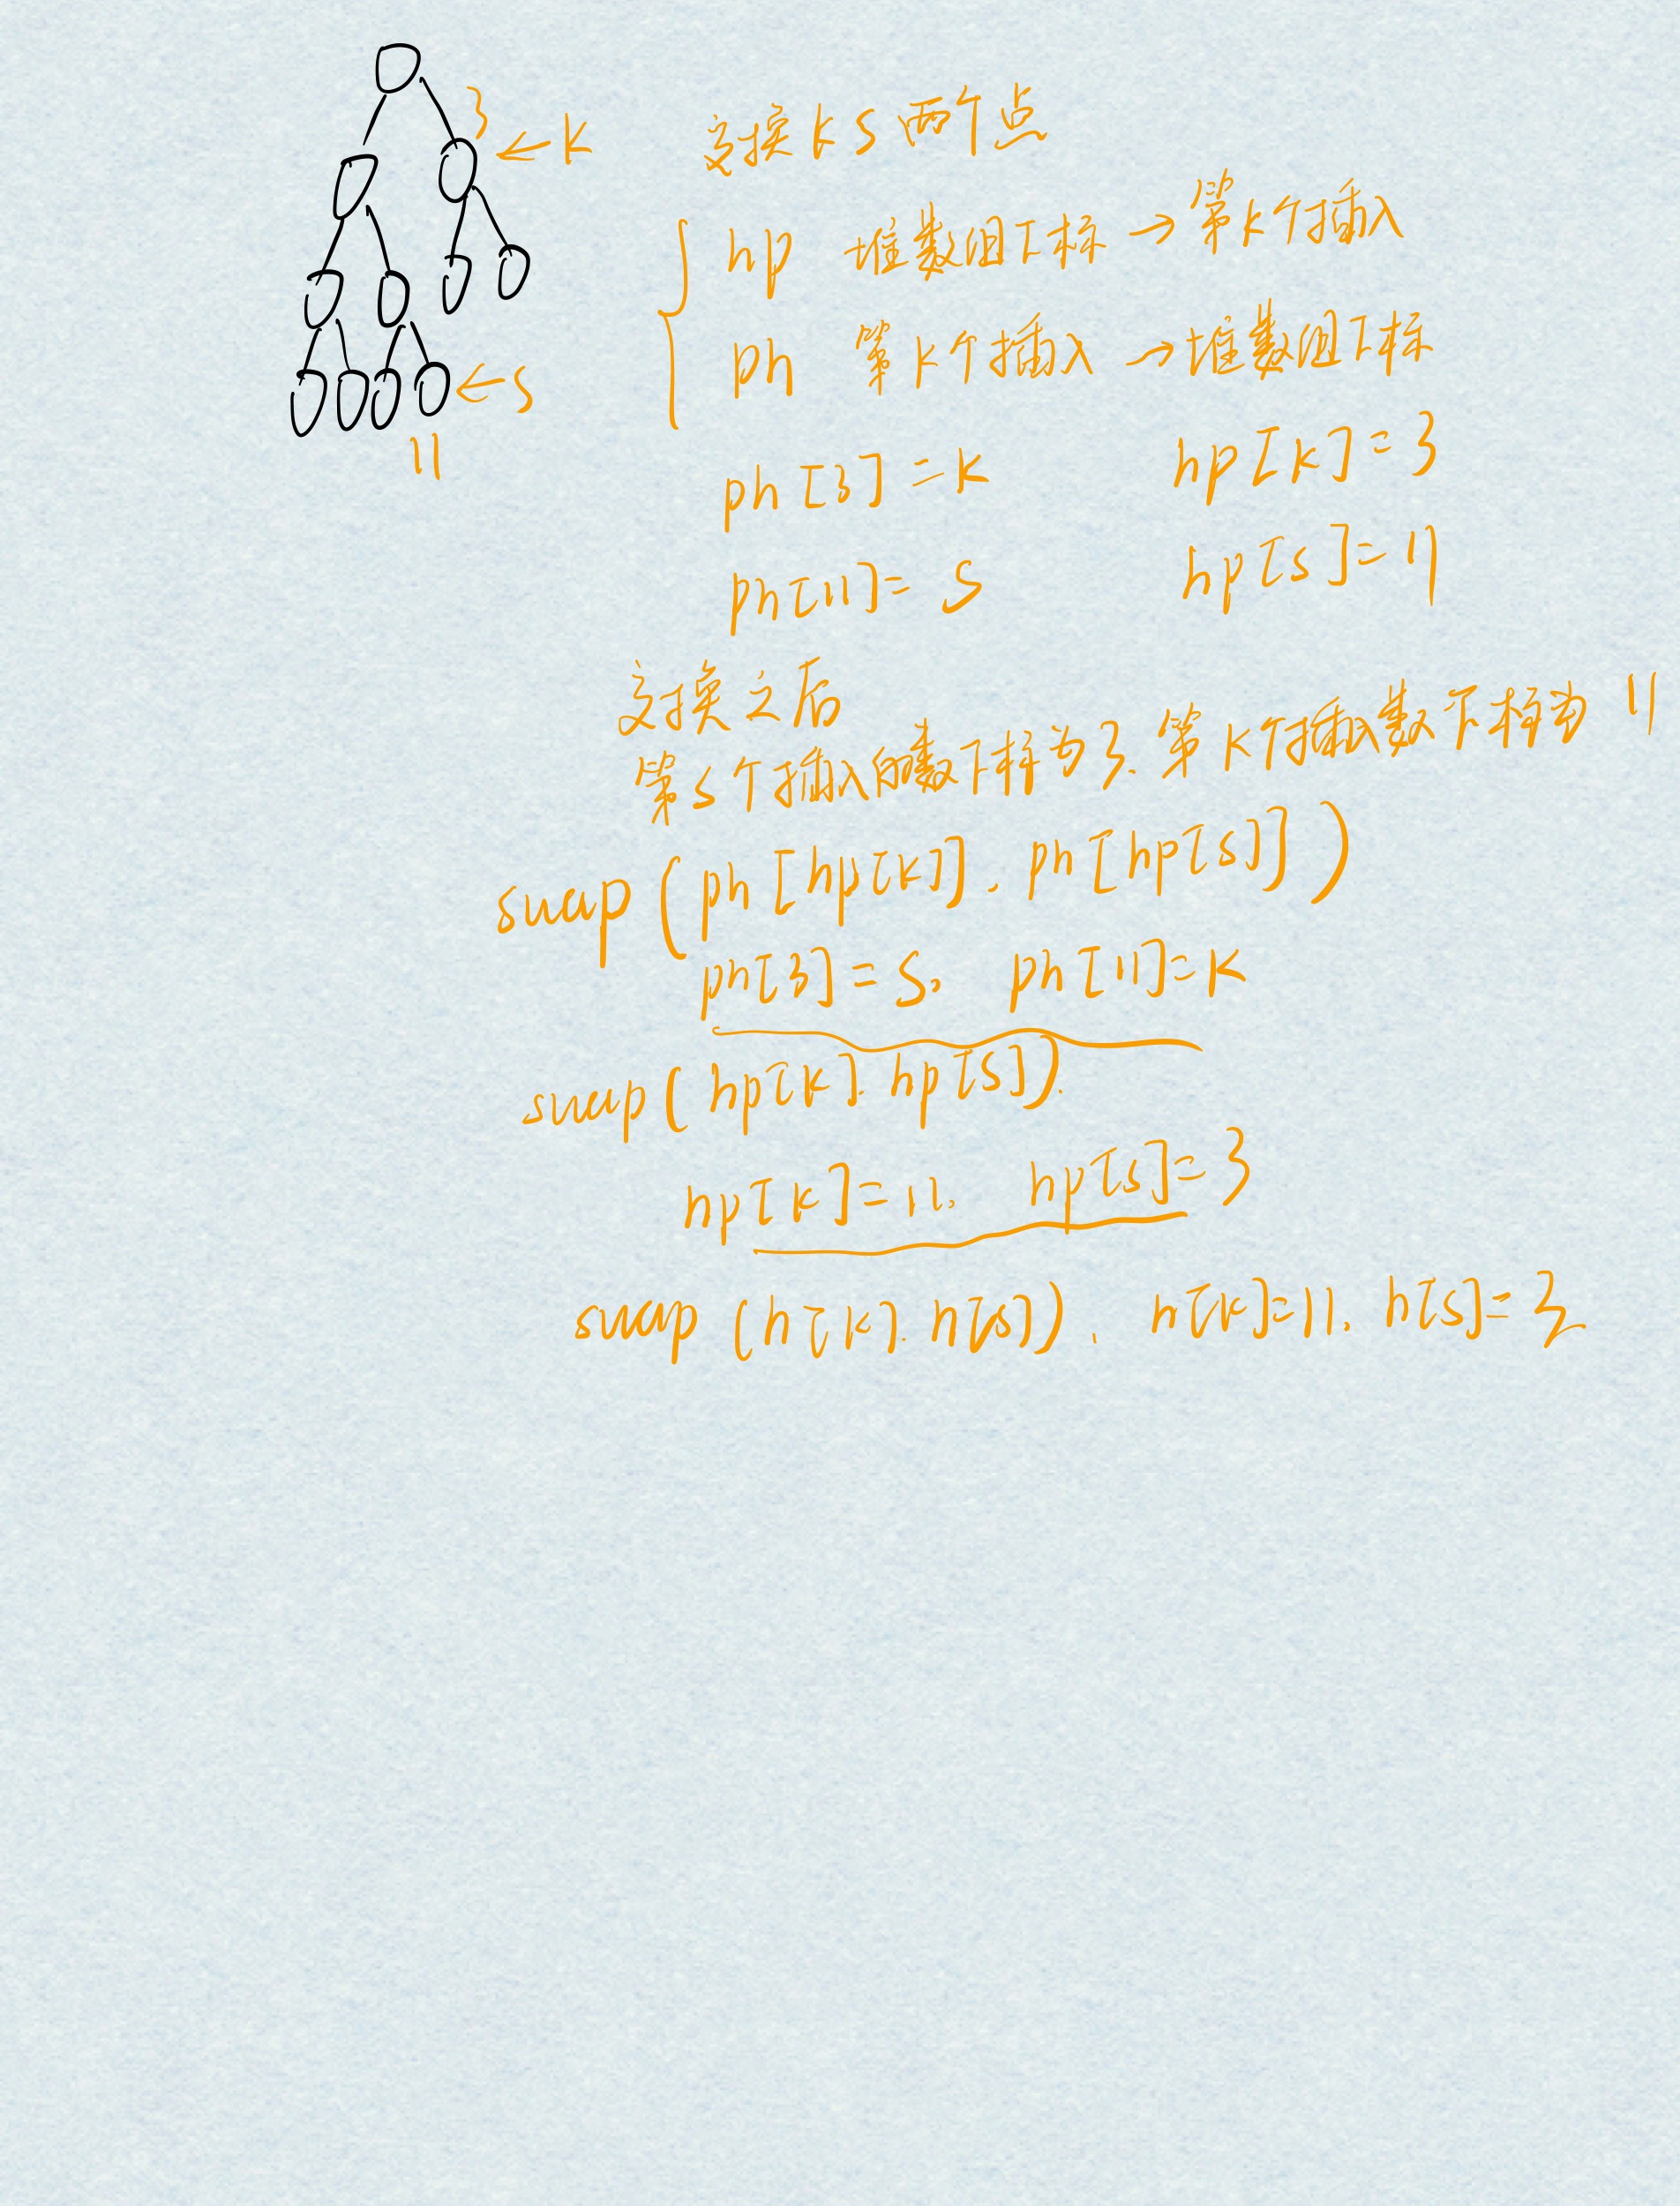 3
← K
交换 k S 两个点
hp 堆数组下标 → 第k个插入
ph 第k个插入 → 堆数组下标
← S
11
ph[3] = K hp[k] = 3
ph[11] = S hp[s] = 11
交换之后
第s个插入的数下标为3. 第k个插入数下标为 11
swap (ph[hp[k]], ph[hp[s]])
ph[3] = S, ph[11] = K
swap( hp[k]. hp[s]).
hp[k] = 11, hp[s] = 3
swap (h[k]. h[s]), h[k]=11, h[s] = 3